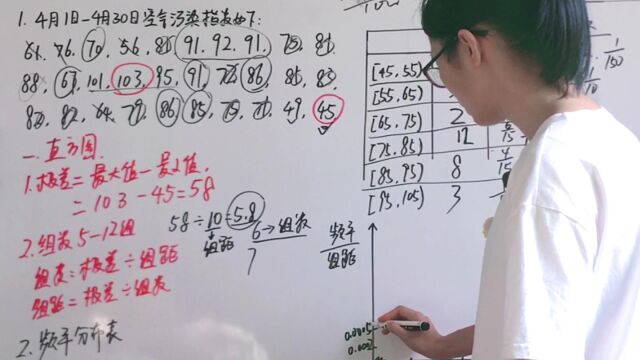 1. 4月1日-4月30日空气污染指数如下:
61. 76. 70. 56. 81. 91. 92. 91. 75. 81.
88. 67. 101. 103. 95. 91. 77. 86. 81. 83.
82. 82. 64. 79. 86. 85. 75. 71. 49. 45
一. 直方图.
1. 极差 = 最大值 - 最小值.
= 103 - 45 = 58
2. 组数 5-12组
组数 = 极差 ÷ 组距
组距 = 极差 ÷ 组数
2. 频率分布表
58 ÷ 10 = 5.8
组距
6 → 组数
7
[45, 55)
[55, 65)
[65, 75) 2
[75, 85) 12
[85, 95) 8
[95, 105) 3
1/150
频率
组距